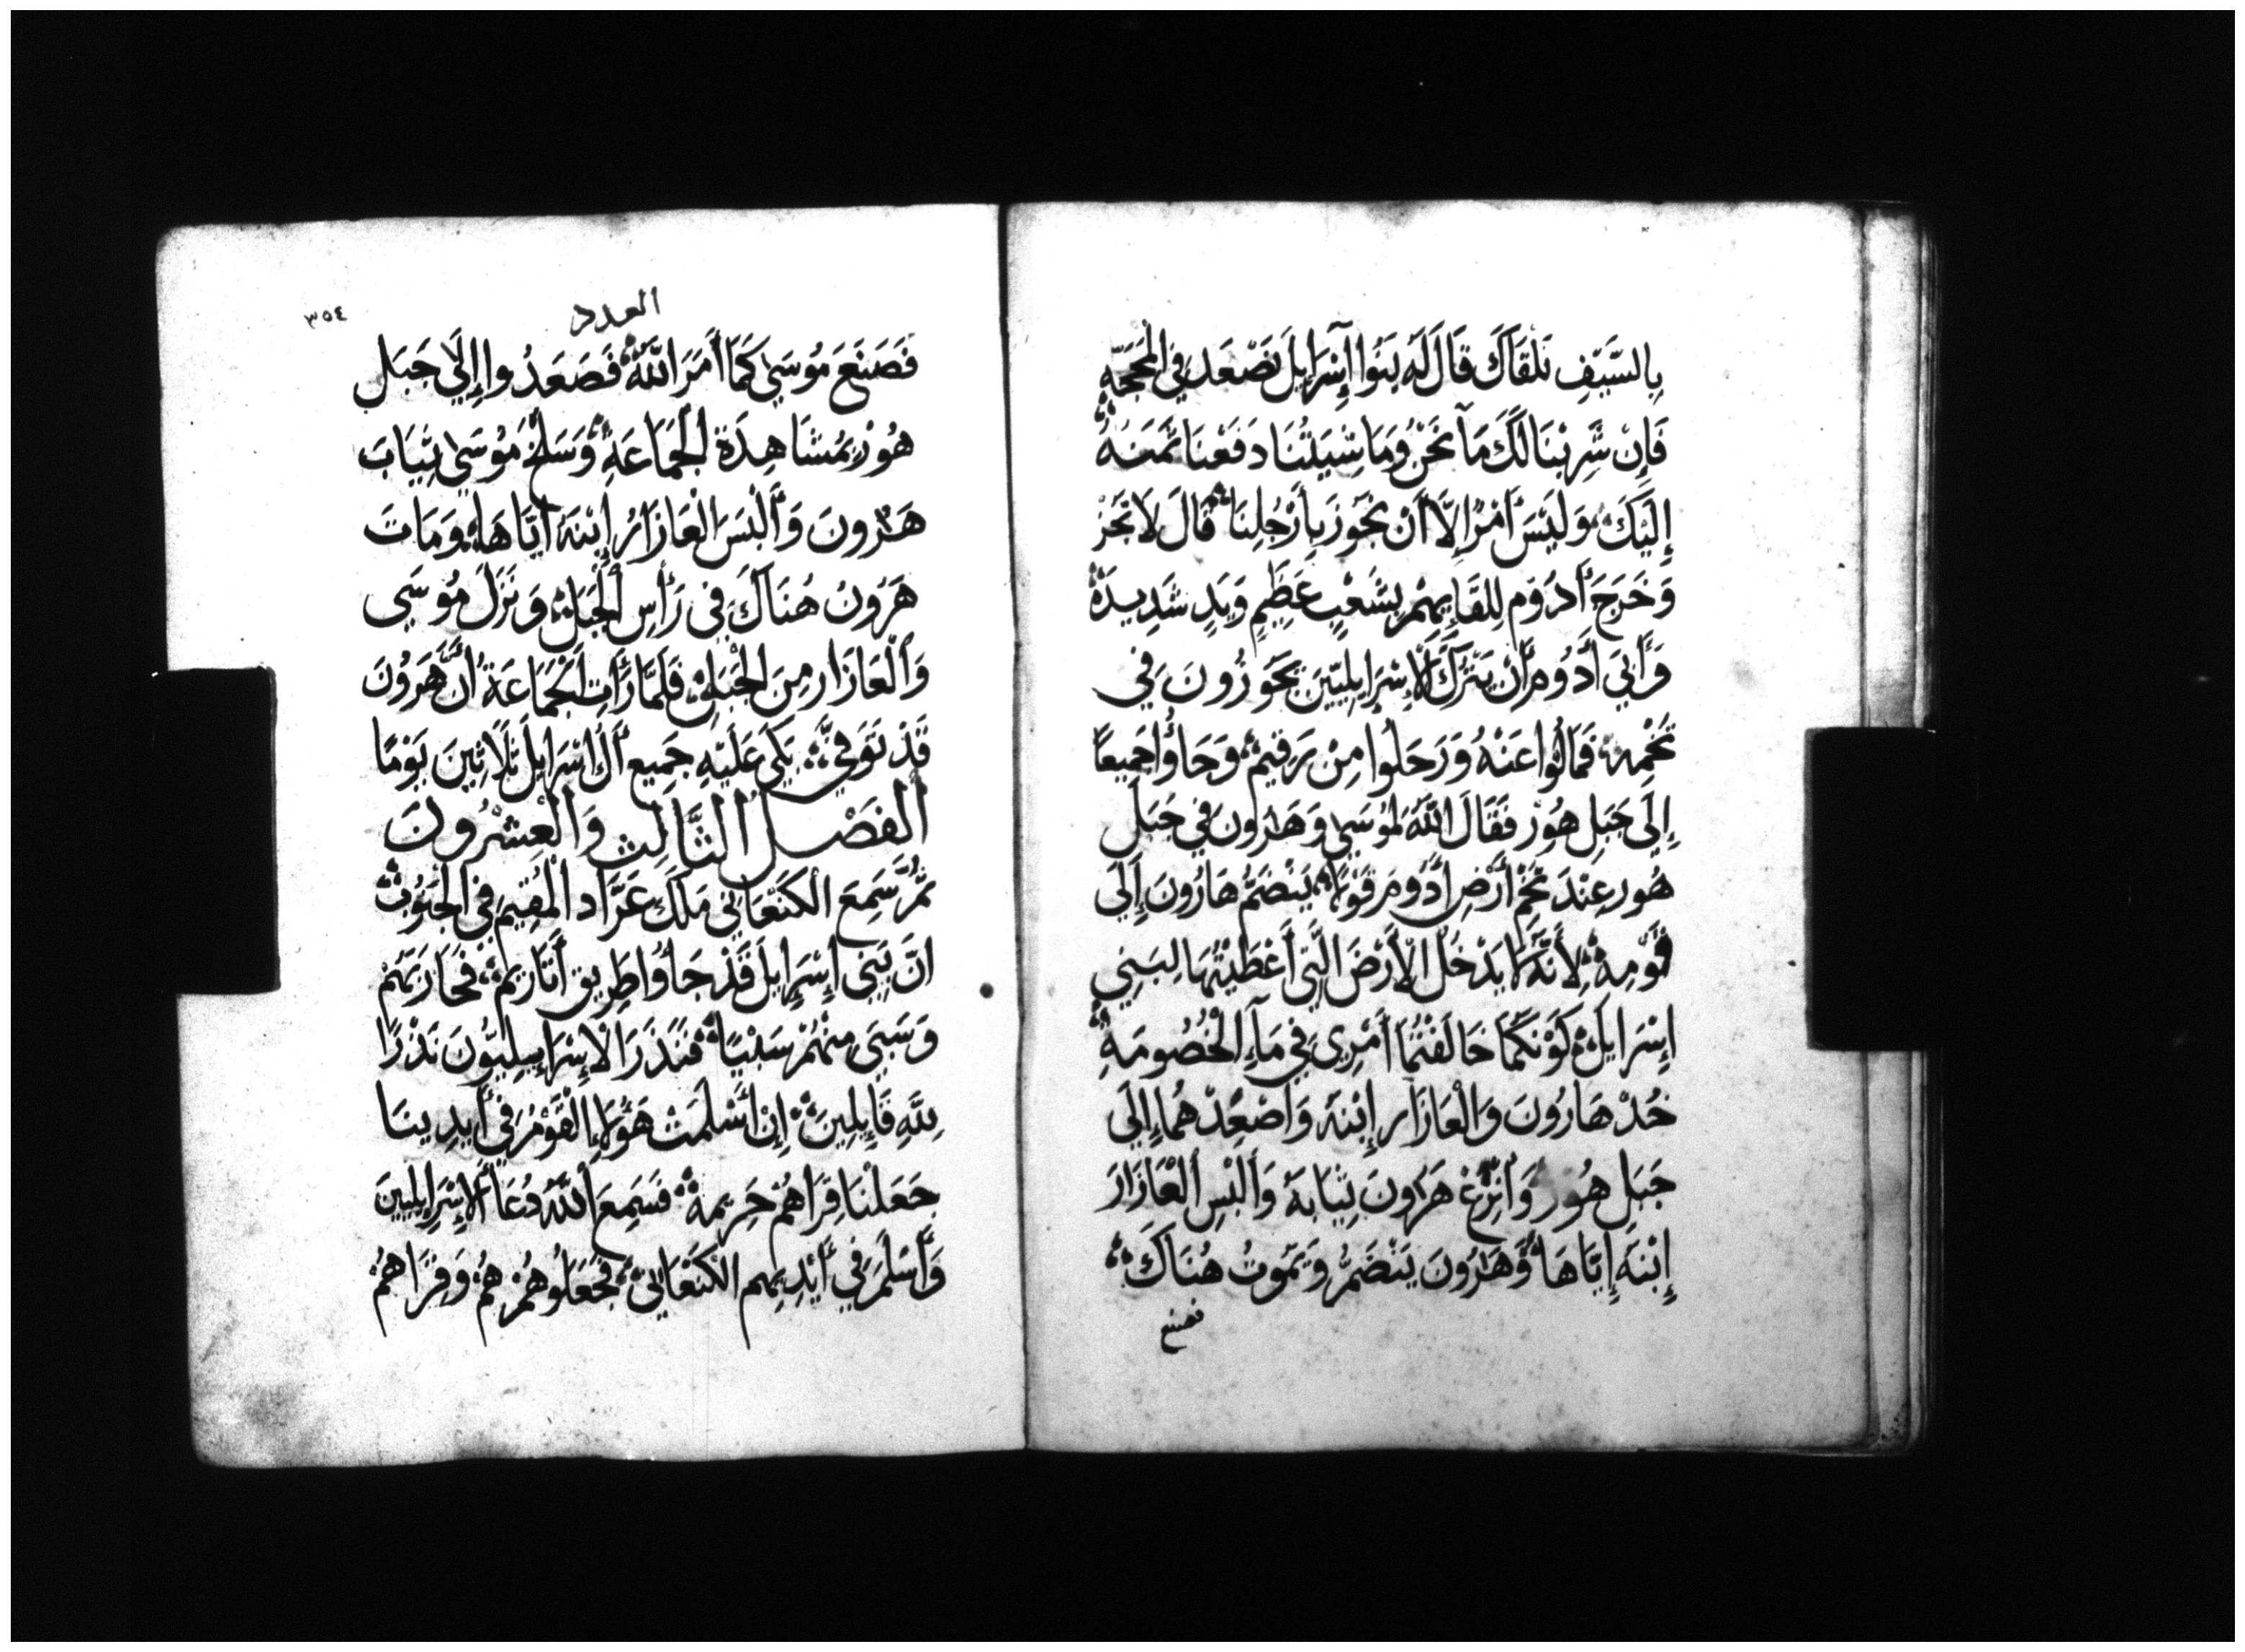 بِالسَّيْفِ نَلْقَاكَ قَالَ لَهُ بَنُوا آِسْرَايِلَ نَصْعَدُ فِي الْمَحَجَّةِ
فَإِنْ شَرِبْنَا لَكَ مَآ نَحْنُ وَمَاشِيَتُنَا دَفَعْنَا ثَمَنَهُ
إِلَيْكَ وَلَيْسَ أَمْرًا إِلَّا أَنْ نَجُوزَ بِأَرْجُلِنَا قَالَ لَا تَجُزْ
وَخَرَجَ أَدُوم لِلِقَايِهِمْ بِشَعْبٍ عَظِيمٍ وَيَدٍ شَدِيدَةٍ
وَأَبَىَ أَدُومُ أَنْ يَتْرُكَ الْإِسْرَايِلِيّيِنَ يَجُوزُونَ فِي
تَخْمِهِ فَمَالُوا عَنْهُ وَرَحَلُوا مِنْ رَقِيم وَجَاؤُا جَمِيعًا
إِلَى جَبَلِ هُوْر فَقَالَ اللَّهُ لِمُوسَى وَهَرُونَ فِي جَبَلِ
هُور عِنْدَ تَخْمِ أَرْضِ أَدُومَ قَوْلًا يَنْضَمُّ هَارُونَ إِلَى
قَوْمِهِ لِأَنَّهُ لَا يَدْخُلُ الْأَرْضَ الَّتِي أَعْطَيْتُهَا لِبَنِي
اِسْرَايِلَ كَوْنَكُمَا خَالَفْتُمَا أَمْرِي فِي مَآءِ الْخُصُومَةِ
خُذْ هَارُونَ وَالْعَازَار إِبْنَهُ وَاصْعِدْهُمَا إِلَى
جَبَلِ هُور وَانْزِعْ هَرُونَ ثِيَابَهُ وَأَلْبِسِ الْعَازَارَ
إِبْنَهُ إِيَّاهَا وَهَرُونَ يَنْضَمُّ وَيَمُوتُ هُنَاكَ
فصنع
العدد
٣٥٤
فَصَنَعَ مُوسَى كَمَا أَمَرَ اللَّهُ فَصَعَدُوا إِلَى جَبَلِ
هُوْرِ بِمُشَاهِدَة الْجَمَاعَةِ وَسَلَخَ مُوسَى ثِيَابَ
هَرُونَ وَأَلْبَسَ الْعَازَارُ إِبْنَهُ اَيَّاهَا وَمَاتَ
هَرُونُ هُنَاكَ فِى رَأسِ الْجَبَلِ وَنَزَلَ مُوسَى
وَالْعَازَار مِنَ الْجَبَلِ فَلَمَّا رَأَتِ الْجَمَاعَةُ أَنَّ هَرُونَ
قَدْ تَوَفِّيَ بَكَى عَلَيْهِ جَمِيع أَلِ اسْرَايِلَ ثَلَاثِينَ يَوْمًا
اَلْفَصْلُ الثَّالِث وَالْعِشْرُونَ
ثُمَّ سَمِعَ الْكَنْعَانِي مَلَكِ عَرَاد الْمُقِيمِ فِي الْجَنُوبِ
انَّ بَنِي إِسْرَايِلَ قَدْ جَاؤُا طَرِيقِ أَثَارِيم فَحَارَبَهُمْ
وَسَبَى مِنْهُمْ سَبْيًا فَنَذَرَ الْإِسْرَايِيلِيُّونَ نَذْرًا
لِلَّهِ قَايِلِينَ إِنْ أَسْلَمَتْ هَؤُلَاءِ الْقَوْمُ فِي أَيدِينَا
جَعَلْنَا قِرَاهُمْ حَرِيمة فَسَمِعَ اللَّهُ دُعَا الْإِسْرَايِلِيينَ
وَأَسْلَمَ فِي أَيْدِيهِم الْكَنْعَانِي فَجَعَلُوهُمْ هُمْ وَقِرَاهُمْ